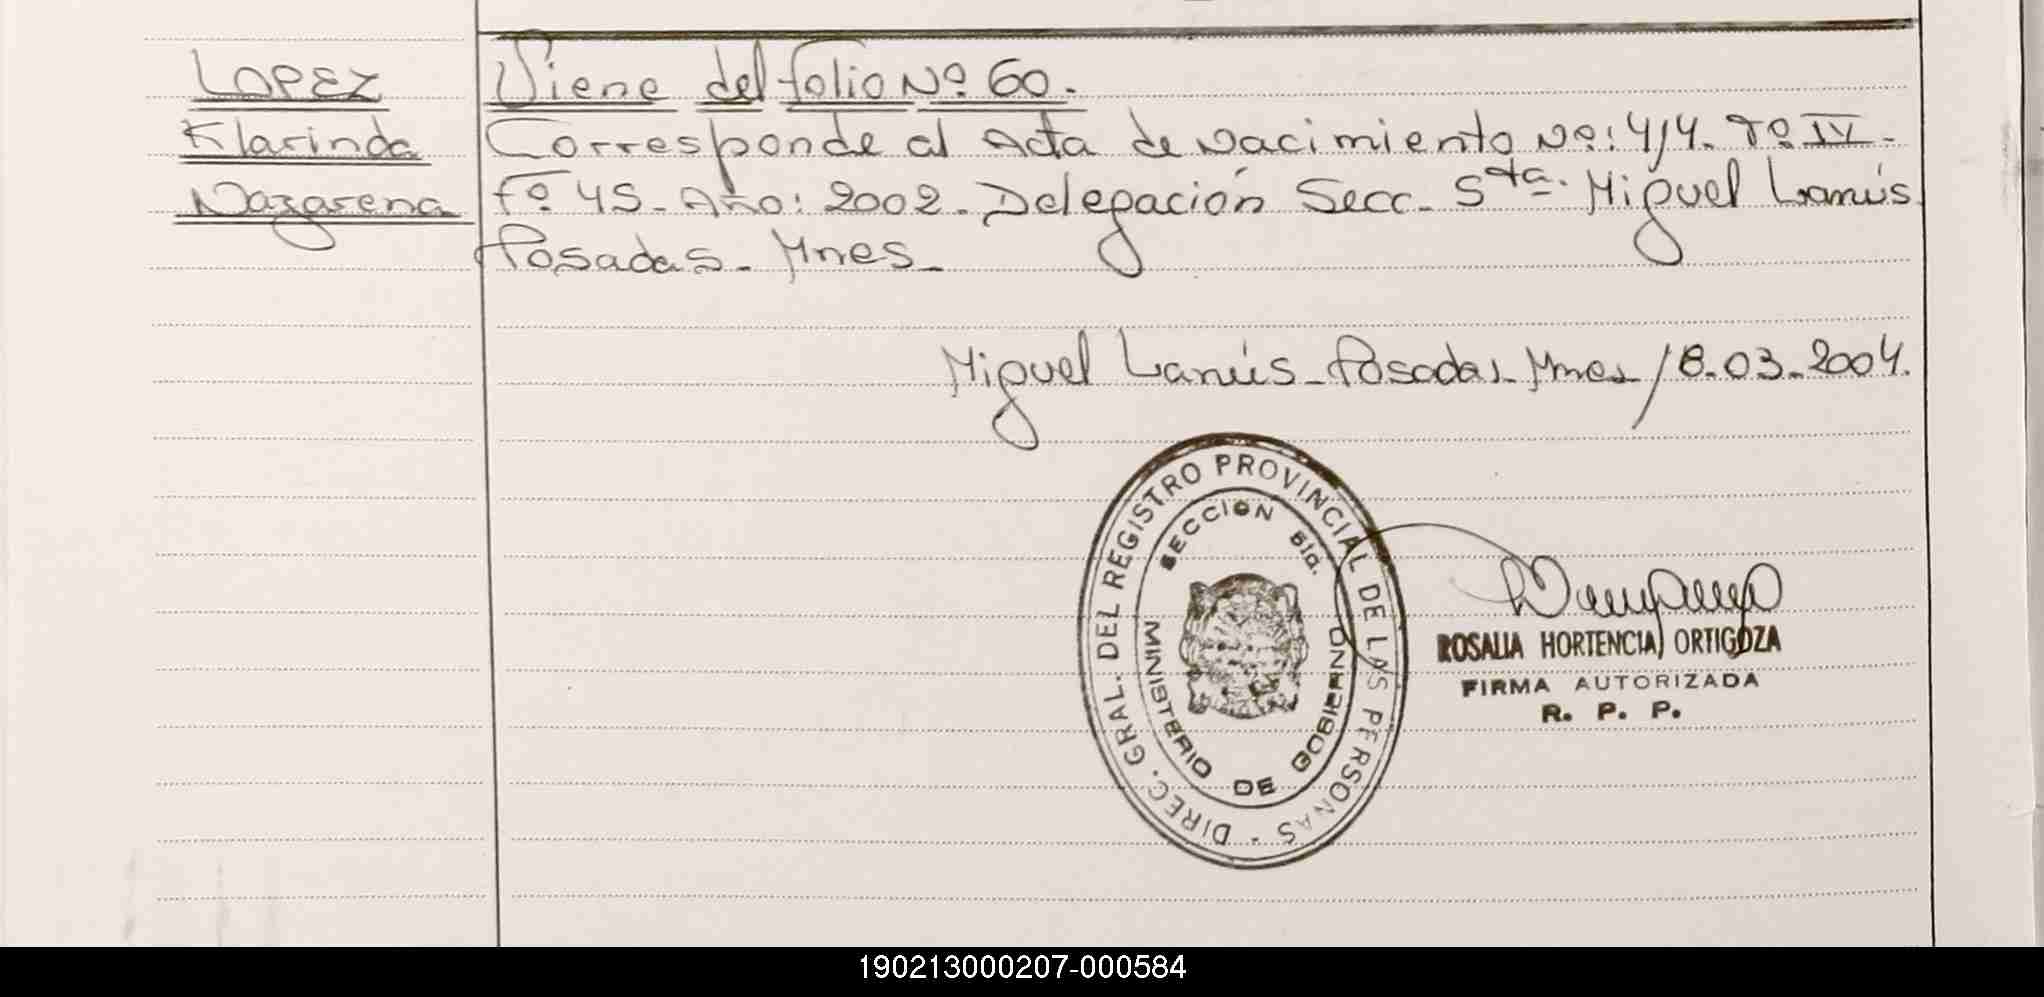 LOPEZ
Klarinda
Nazarena
Viene del folio Nº 60.
Corresponde al Acta de Nacimiento Nº: 414. Tº IV-
Fº 45- Año: 2002. Delegación Secc. 5ta. Miguel Lanús
Posadas- Mnes-
Miguel Lanús- Posadas- Mnes 18-03-2004.
DIREC. GRAL. DEL REGISTRO PROVINCIAL DE LAS PERSONAS -
SECCION 5ta.
MINISTERIO DE GOBIERNO
ROSALIA HORTENCIA ORTIGOZA
FIRMA AUTORIZADA
R. P. P.
190213000207-000584